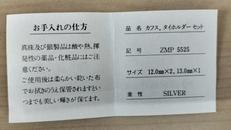 お手入れの仕方
真珠及び銀製品は酸や熱、揮
発性の薬品・化粧品にはご注
意ください。
ご使用後は柔らかい乾いた布
でお拭きのうえ保管されますとい
つまでも美しい輝きが保てます。
品名 カフス、タイホルダーセット
記号 ZMP 5525
サイズ 12.0mm×2, 13.0mm×1
素性 SILVER